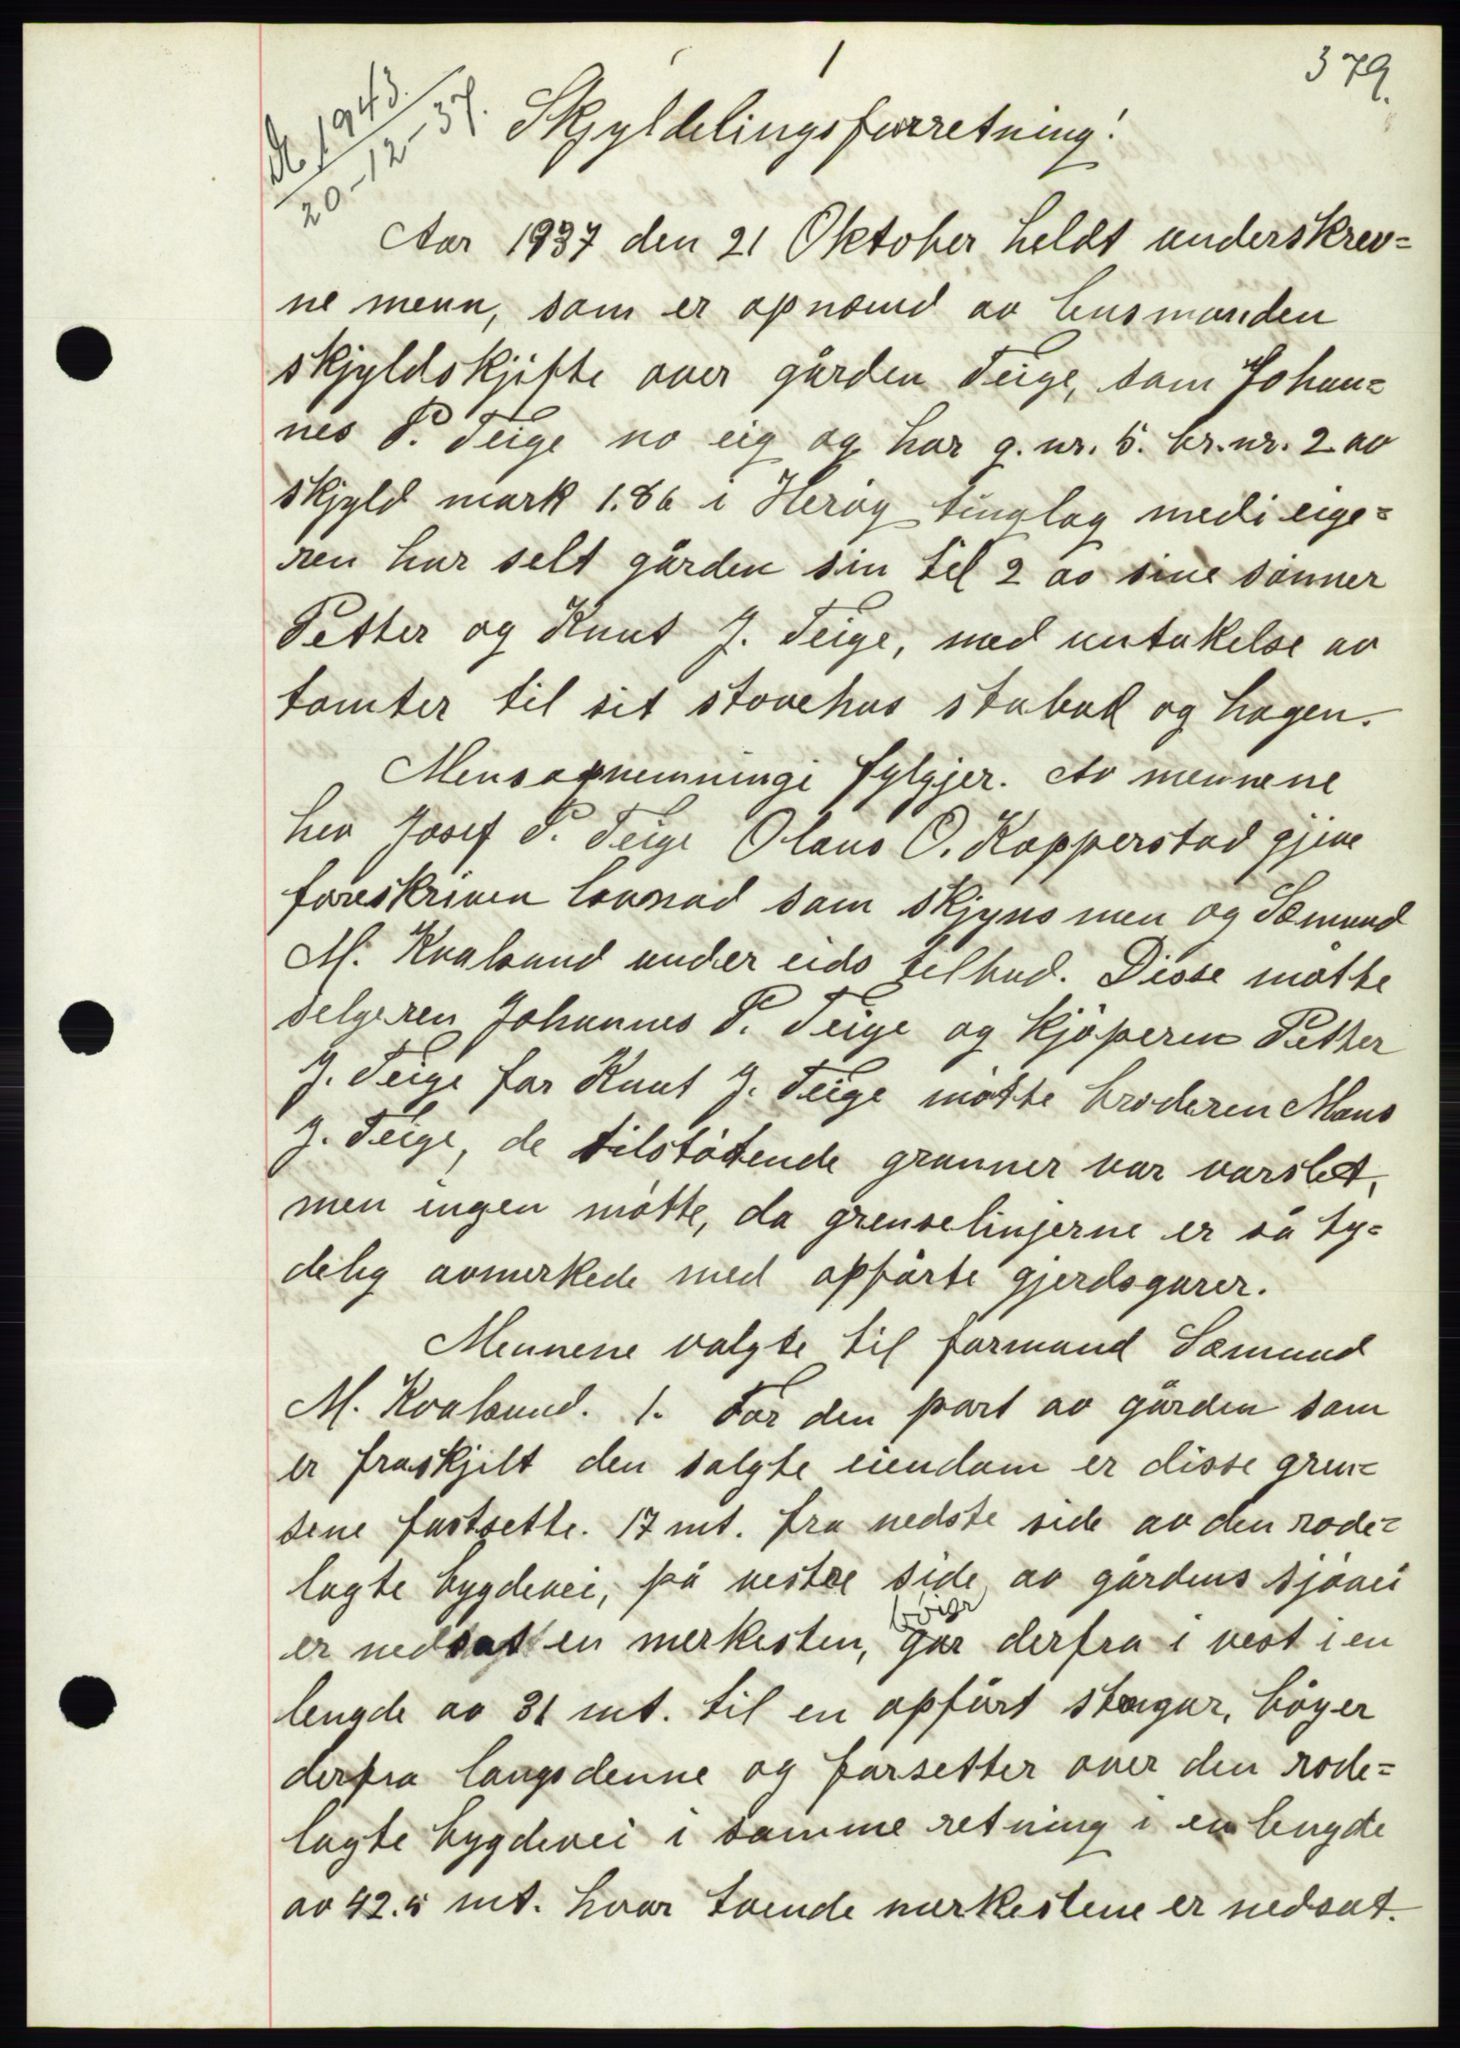 1
379.
No 1943.
20-12-37.
Skjyldelingsforretning!
Aar 1937 den 21 Oktober heldt underskrev=
ne menn, som er opnæmd av lensmanden
skjyldskjifte over gården Teige, som Johan=
nes P. Teige no eig og har g.nr. 5. br.nr. 2 av
skjyld mark 1.86 i Herøy tinglag medi eige=
ren har selt gården sin til 2 av sine sønner
Petter og Knut J. Teige, med untakelse av
tomter til sit stovehus stabud og hagen.
Mensopnemningi fylgjer. Av mennene
hev Josef P. Teige Olaus O. Kopperstad gjeve
foreskriven lovnad som skjyns men og Sæmund
M. Kvalsund under eids tilbud. Disse møtte
selgeren Johannes P. Teige og kjøperen Petter
J. Teige for Knut J. Teige møtte broderen Mons
J. Teige, de tilstøtende granner var varslet,
men ingen møtte, da grenselinjerne er så ty=
delig avmerkede med opførte gjerdsgarer.
Mennene valgte til formand Sæmund
M. Kvalsund. 1. For den part av gården som
er fraskjilt den solgte eiendom er disse gren=
sene fastsette. 17 mt. fra nedste side av den rode=
lagte bygdevei, på vestre side av gårdens sjøvei
er nedsat en merkesten, går derfra i vest i en
bøier
lengde av 31 mt. til en opført stengar, bøyer
derfra langs denne og forsetter over den rode=
lagte bygdevei i samme retning i en lengde
av 42.5 mt. hvor tvende merkestene er nedsat.